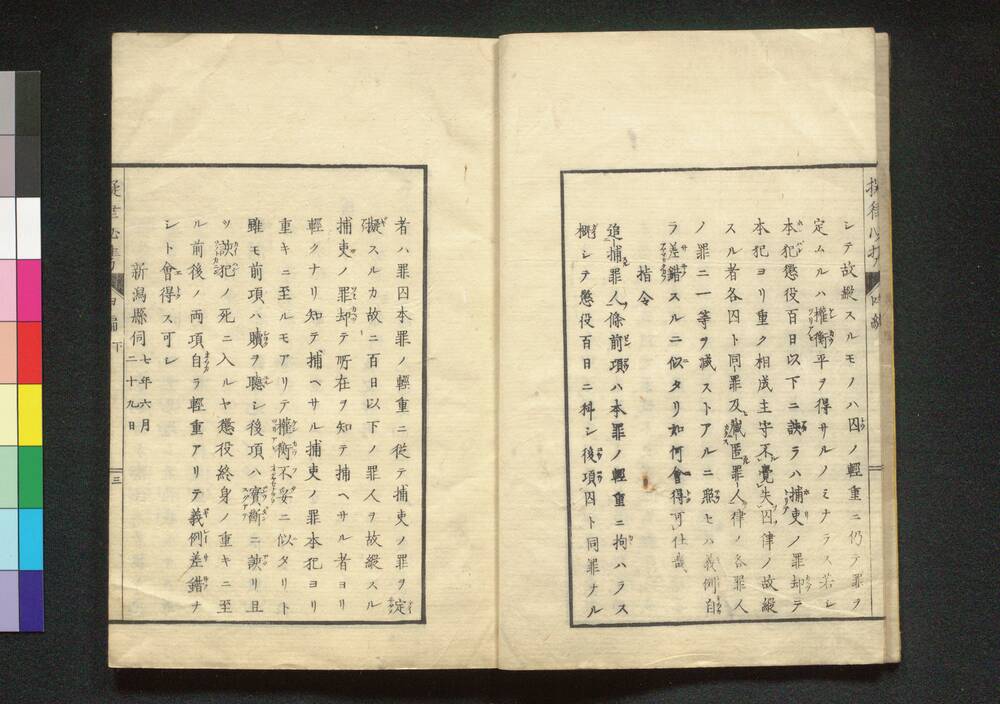 シテ故縱スルモノハ囚ノ輕重ニ仍テ罪ヲ
定ムルハ權衡平ヲ得サルノミナラス若シ
本犯懲役百日以下ニ諛ラハ捕吏ノ罪却テ
本犯ヨリ重ク相成主守不覺失囚律ノ故縱
スル者各囚ト同罪及藏匿罪人律ノ各罪人
ノ罪ニ一等ヲ減ストアルニ照セハ義例自
ラ差錯スルニ似タリ如何會得可仕哉
指令
追捕罪人條前項ハ本罪ノ輕重ニ拘ハラス
概シテ懲役百日ニ科シ後項囚ト同罪ナル
者ハ罪囚本罪ノ輕重ニ從テ捕吏ノ罪ヲ定
擬スルカ故ニ百日以下ノ罪人ヲ故縱スル
捕吏ノ罪却テ所在ヲ知テ捕ヘサル者ヨリ
輕クナリ知テ捕ヘサル捕吏ノ罪本犯ヨリ
重キニ至ルモアリテ權衡不妥ニ似タリト
雖モ前項ハ贖ヲ聽シ後項ハ實斷ニ諛リ且
ツ諛犯ノ死ニ入ルヤ懲役終身ノ重キニ至
ル前後ノ両項自ラ輕重アリテ義例差錯ナ
シト會得ス可シ
新潟縣伺 七年六月二十九日
三